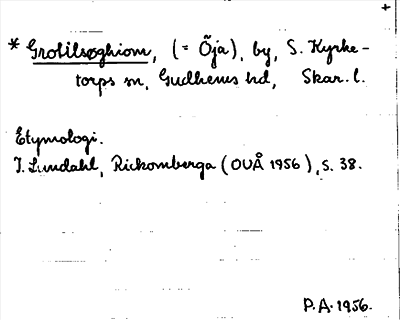 +
* Grotilsøghiom, (= Öja), by, S. Kyrke-
torps sn, Gudhems hd, Skar. l.
Etymologi.
I. Lundahl, Rickomberga (OUÅ 1956), s. 38.
P.A. 1956.